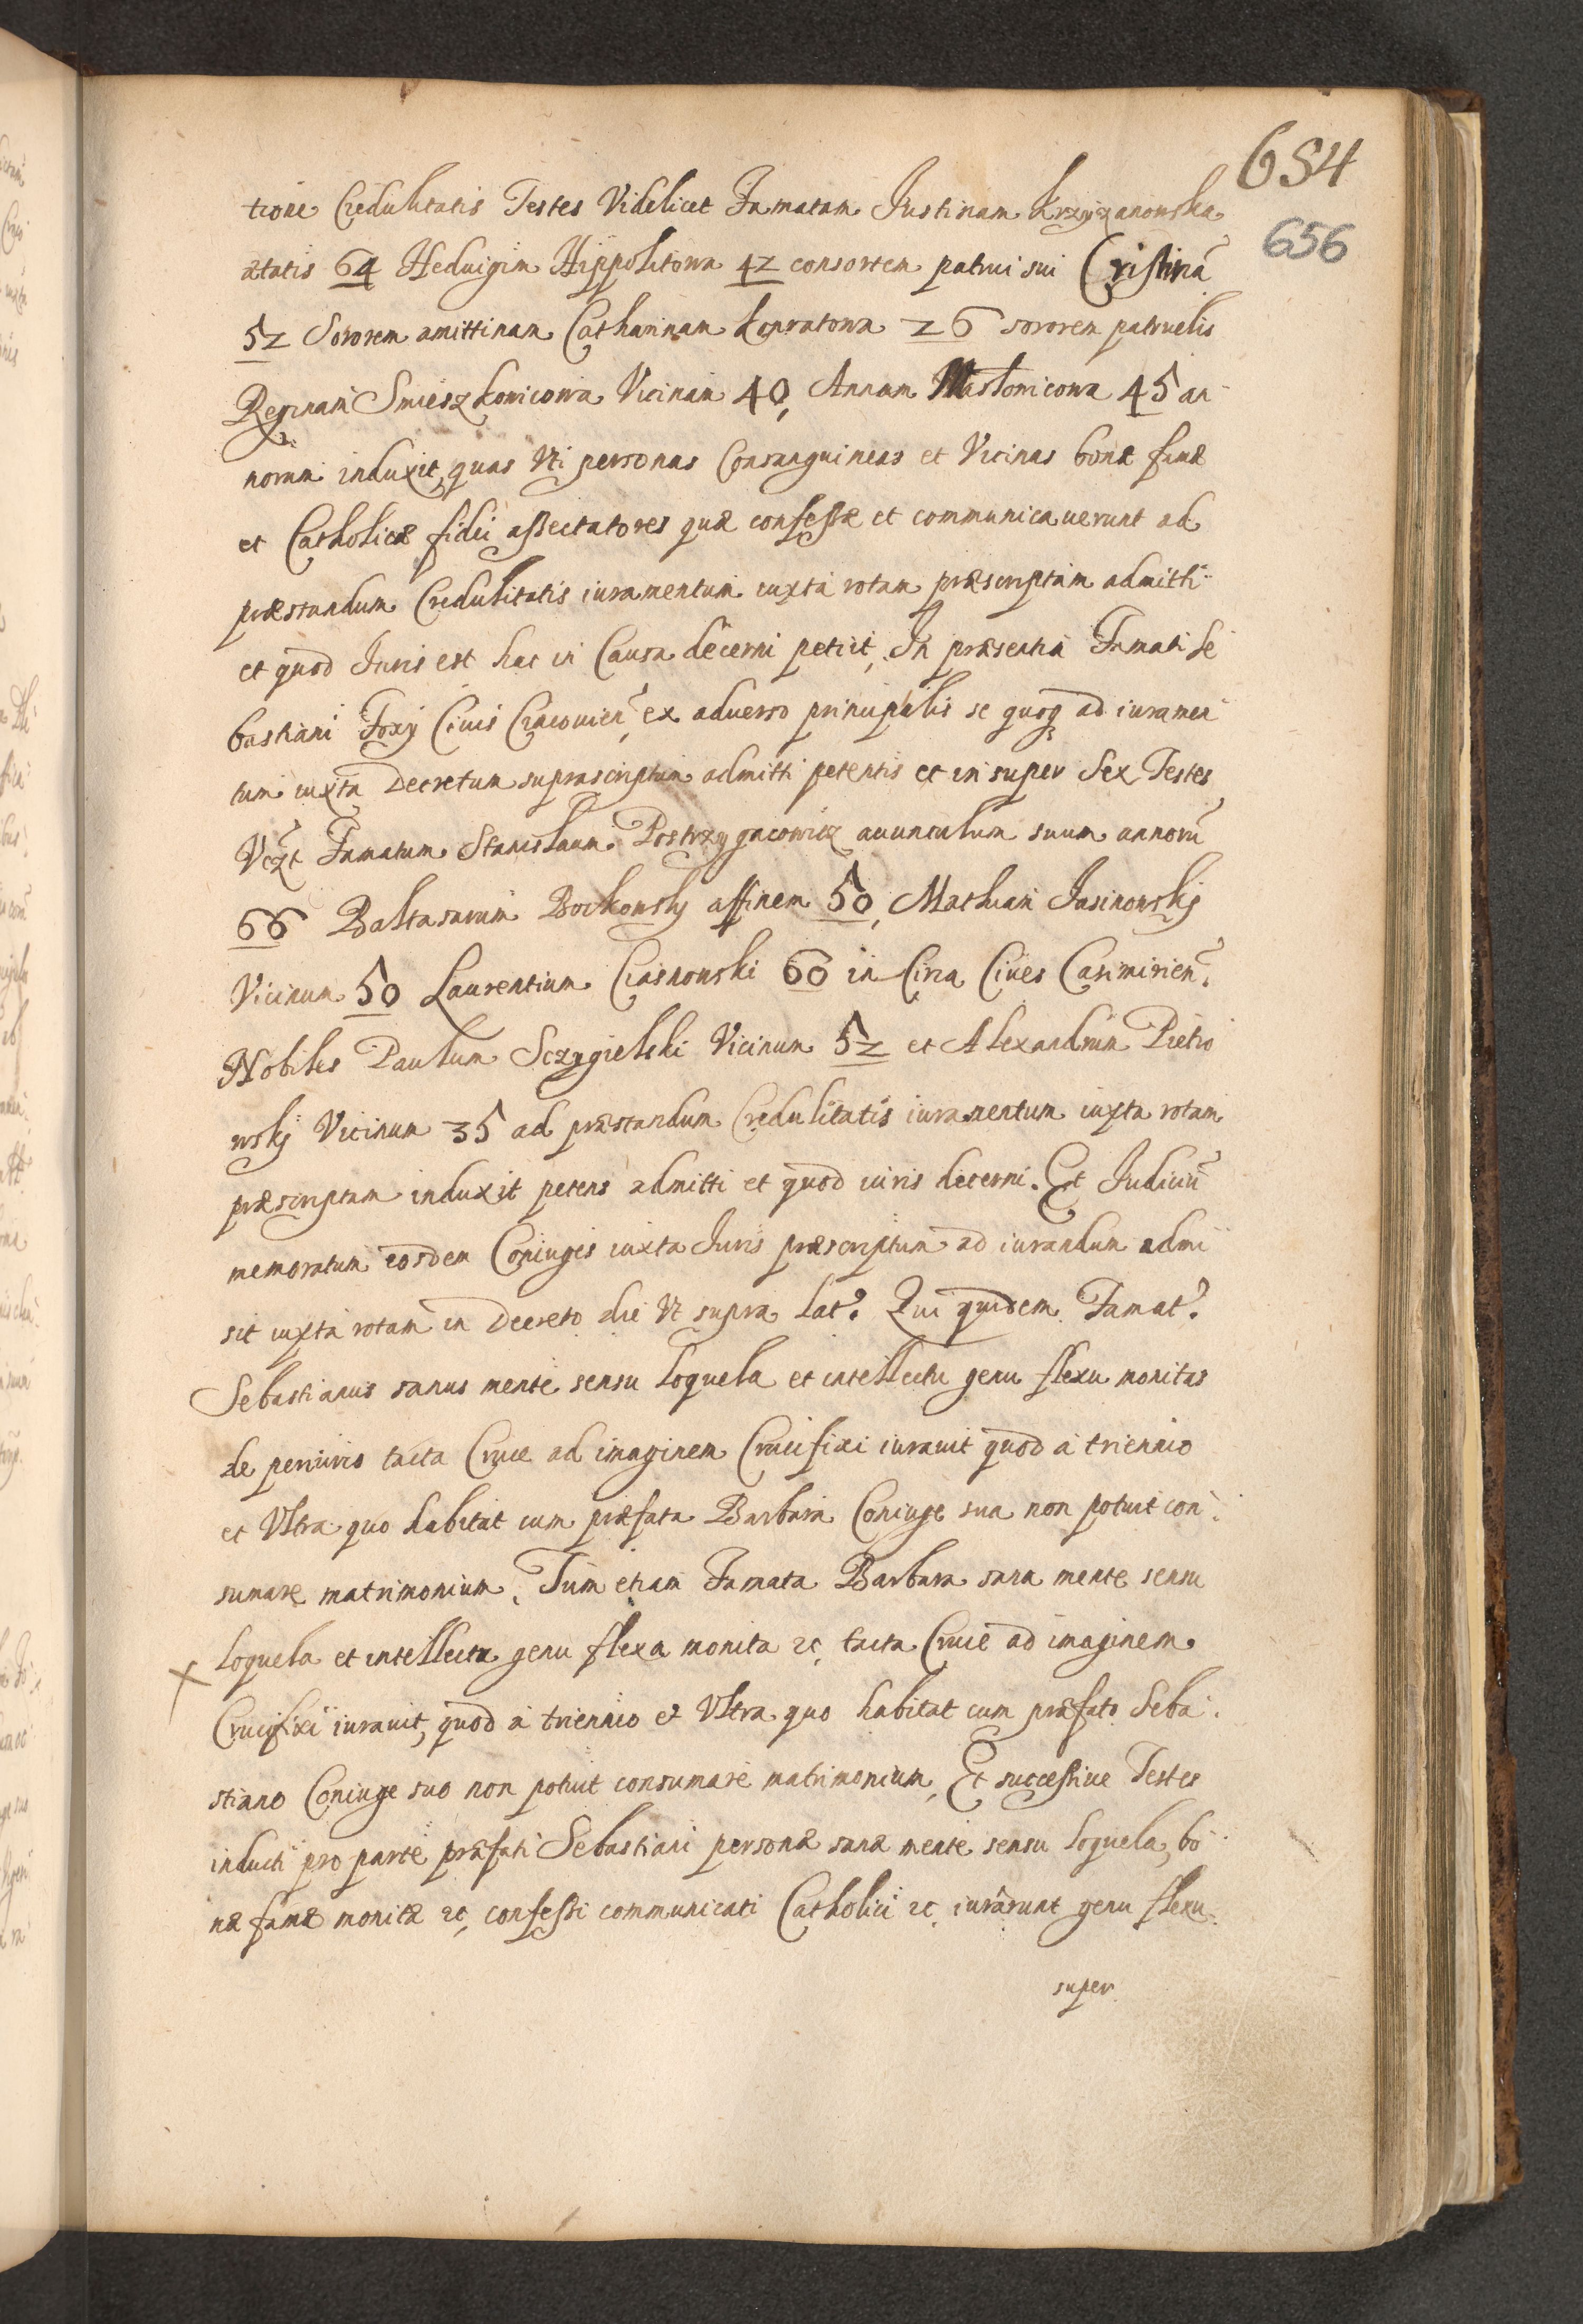 654
656
tione Credulitatis Testes Videlicet Famatam Justinam Krzyzanowska
ætatis 64 Heduigim Hippolitowa 42 consortem patrui sui Cristinã
52 Sororem amittinam Catharinam Konratowa 26 sororem patruelis
Reginam Smieszkowicowa Vicinam 40, Annam Maslowicowa 45 an
norum induxit, quas Vti personas Consanguineas et Vicinas bonæ famæ
et Catholicæ fidei assectatores quæ confessæ et communicauerunt ad
præstandum Credulitatis iuramentum iuxta rotam præscriptam admitti
et quod Juris est hac in Causa decerni petiit, In præsentia Famati Se
bastiani Foxy Ciuis Cracouien̄, ex aduerso principalis se quoq ad iuramen
tum iuxta Decretum suprascriptum admitti petentis et in super Sex Testes
Vczt Famatum Stanislaum Postrzygacowicz auunculum suum annorũ
66 Baltasarum Bockowsky affinem 50, Mathiam Jasinowsky
Vicinum 50 Laurentium Ciasnowski 60 in Circa Ciues Casimirien̄.
Nobiles Paulum Sczygielski Vicinum 52 et Alexandrum Pietro
wsky Vicinum 35 ad præstandum Credulitatis iuramentum iuxta rotam
præscriptam induxit petens admitti et quod iuris decerni. Et Judiciũ
memoratum eosdem Coniuges iuxta Juris præscriptum ad iurandum admi
sit iuxta rotam in Decreto die Vt supra lat. Qui quidem Famat.
Sebastianus sanus mente sensu loquela et intellectu genu flexu monitus
de periuris tacta Cruce ad imaginem Crucifixi iurauit quod a triennio
et Vltra quo habitat cum præfata Barbara Coniuge sua non potuit con
sumare matrimonium. Tum etiam Famata Barbara sana mente sensu
loquela et intellectu genu flexa monita &c, tacta Cruce ad imaginem
Crucifixi iurauit, quod a triennio et Vltra quo habitat cum præfato Seba
stiano Coniuge suo non potuit consumare matrimonium, Et successiue Testes
inducti pro parte præfati Sebastiani personæ sanæ mente sensu loquela, bo
næ famæ monitæ &c, confessi communicati Catholici &c, iurarunt genu flexu
super